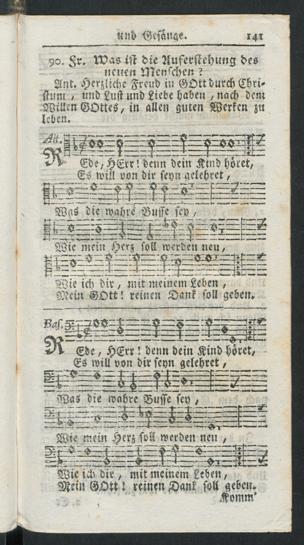 und Gesänge. 141
90. Fr. Was ist die Auferstehung des
neuen Menschen?
Ant. Herzliche Freud in GOtt durch Chri-
stum, und Lust und Liebe haben, nach dem
Willen GOttes, in allen guten Werken zu
leben.
Alt.
REde, HErr! denn dein Kind höret,
Es will von dir seyn gelehret,
Was die wahre Busse sey,
Wie mein Herz soll werden neu,
Wie ich dir, mit meinem Leben,
Mein GOtt! reinen Dank soll geben.
Bas.
REde, HErr! denn dein Kind höret,
Es will von dir seyn gelehret,
Was die wahre Busse sey,
Wie mein Herz soll werden neu,
Wie ich dir, mit meinem Leben,
Mein GOtt! reinen Dank soll geben.
Komm'